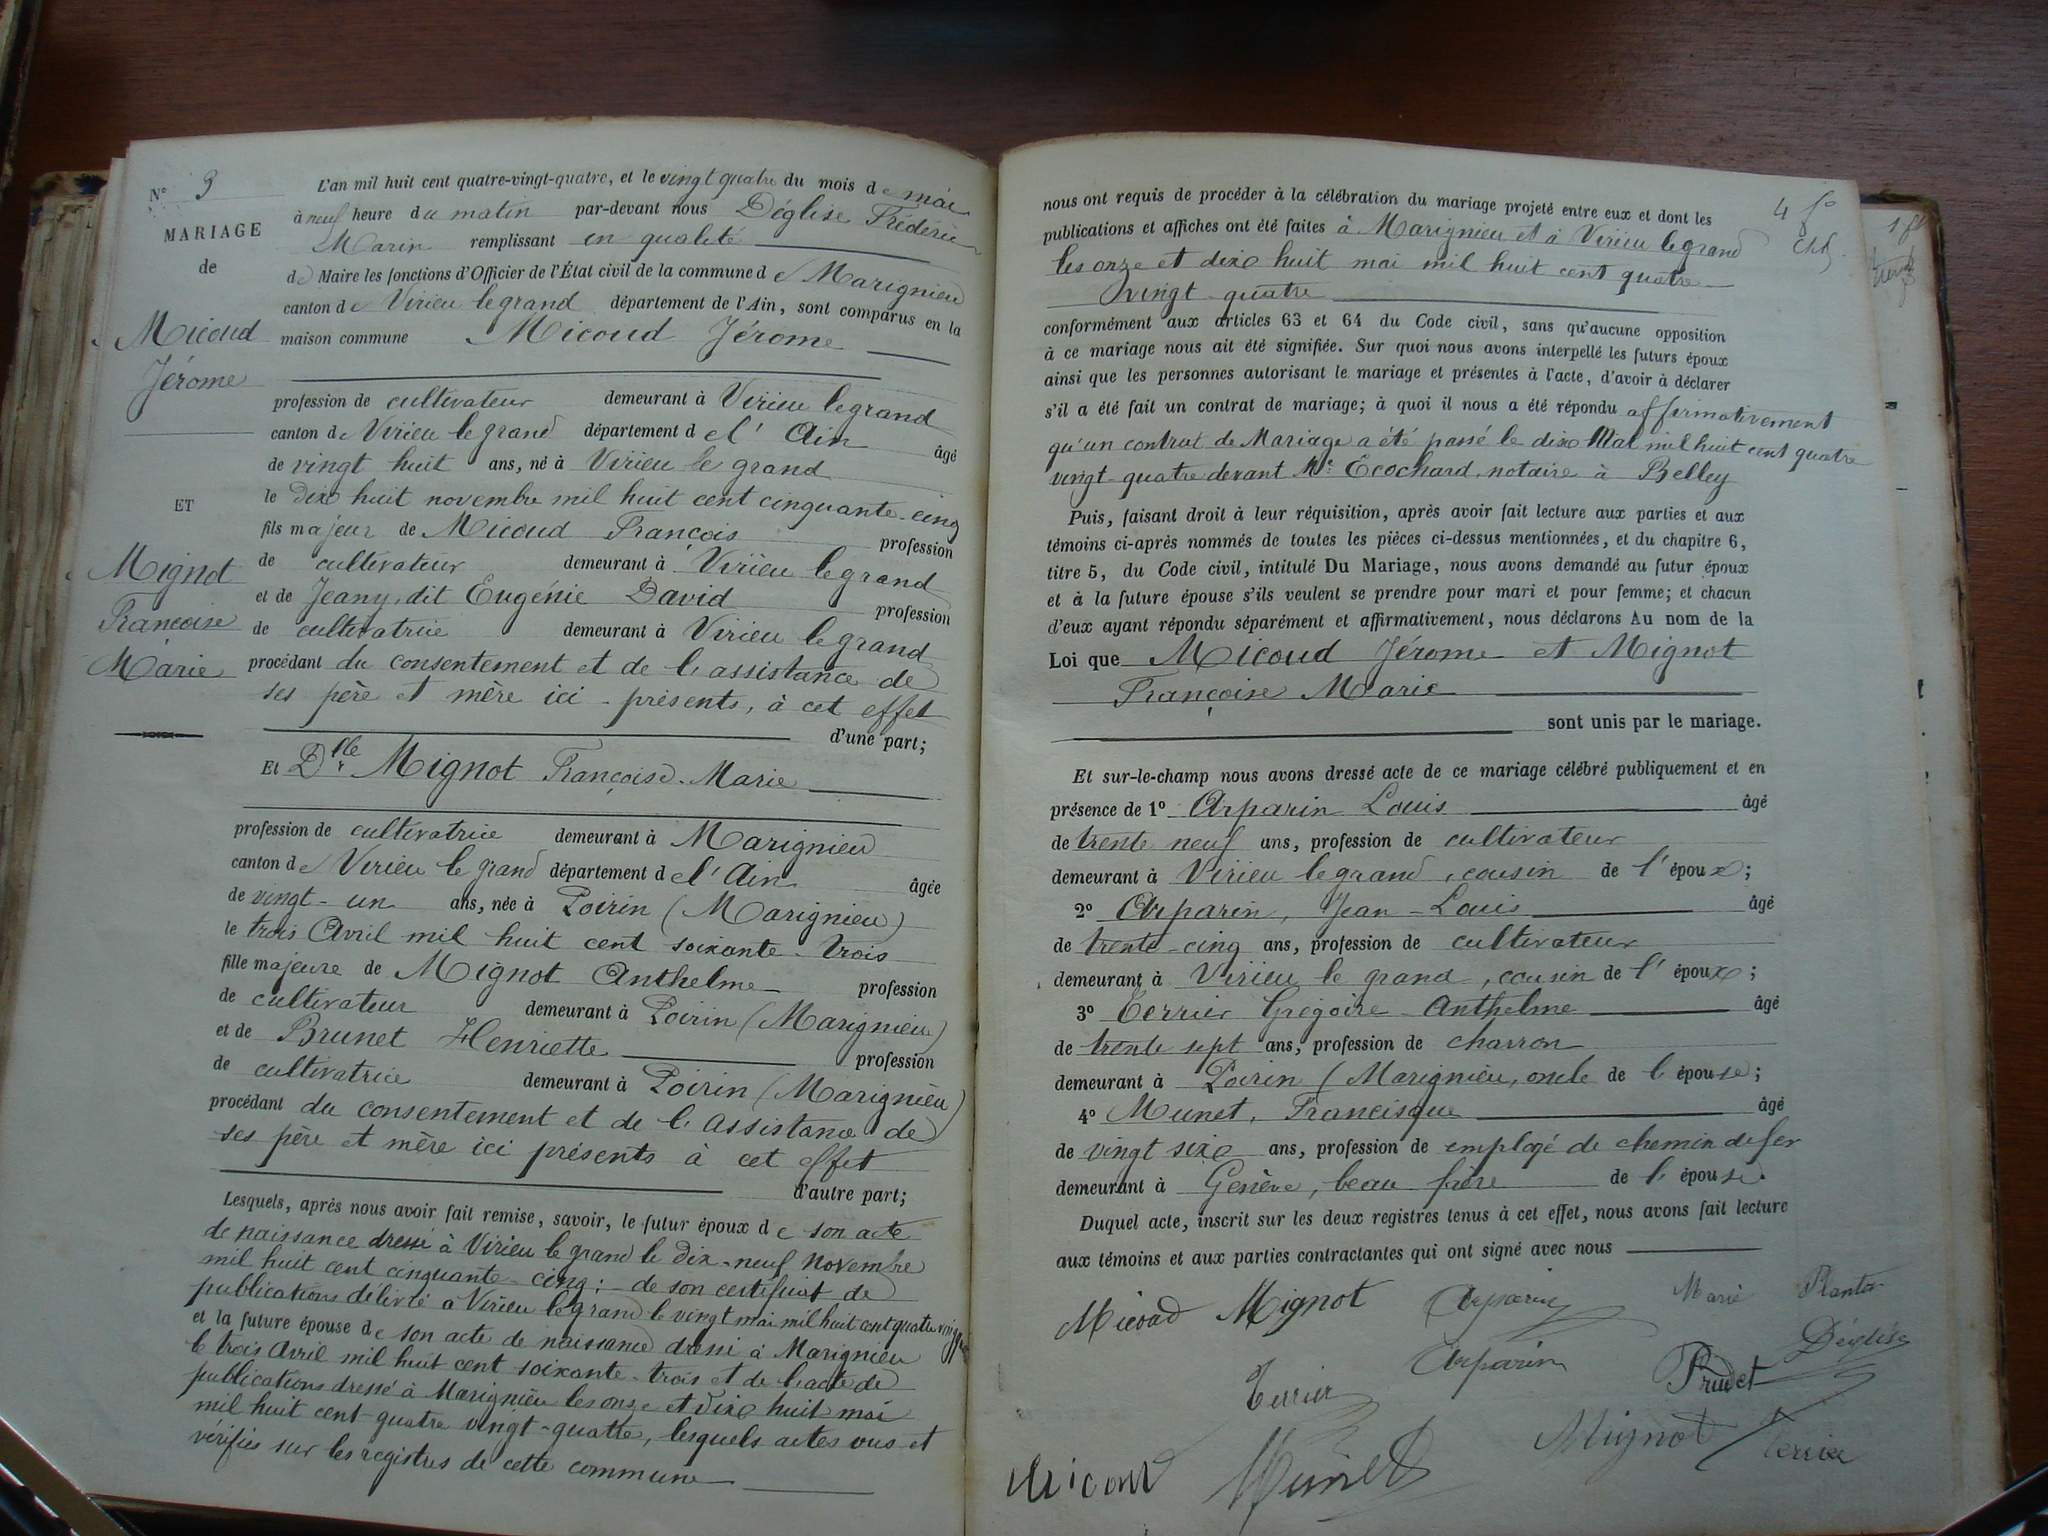 N° 3
MARIAGE
de
Micoud
Jérome
ET
Mignot
Françoise
Marie
L'an mil huit cent quatre-vingt-quatre, et le vingt quatre du mois de mai
à neuf heure du matin par-devant nous Déglise Fréderic
Marin remplissant en qualité
de Maire les fonctions d'Officier de l'État civil de la commune de Marignieu
canton de Virieu le grand département de l'Ain, sont comparus en la
maison commune Micoud Jérome
profession de cultivateur demeurant à Virieu le grand
canton de Virieu le grand département de l'Ain âgé
de vingt huit ans, né à Virieu le grand
le dix huit novembre mil huit cent cinquante-cinq
fils majeur de Micoud François profession
de cultivateur demeurant à Virieu le grand
et de Jeany, dit Eugénie David profession
de cultivatrice demeurant à Virieu le grand
procédant du consentement et de l'assistance de
ses père et mère ici-présents, à cet effet
d'une part;
Et Dlle Mignot Françoise-Marie
profession de cultivatrice demeurant à Marignieu
canton de Virieu le grand département de l'Ain âgée
de vingt-un ans, née à Poirin (Marignieu)
le trois Avril mil huit cent soixante-trois
fille majeure de Mignot Anthelme profession
de cultivateur demeurant à Poirin (Marignieu)
et de Brunet Henriette profession
de cultivatrice demeurant à Poirin (Marignieu)
procédant du consentement et de l'assistance de
ses père et mère ici présents à cet effet
d'autre part;
Lesquels, après nous avoir fait remise, savoir, le futur époux de son acte
de naissance dressé à Virieu le grand le dix-neuf novembre
mil huit cent cinquante-cinq; de son certificat de
publications délivré à Virieu le grand le vingt mai mil huit cent quatre vingt
et la future épouse de son acte de naissance dressé à Marignieu
le trois Avril mil huit cent soixante-trois et de l'acte de
publications dressé à Marignieu les onze et dix huit mai
mil huit cent quatre vingt-quatre, lesquels actes vus et
vérifiés sur les registres de cette commune
nous ont requis de procéder à la célébration du mariage projeté entre eux et dont les
publications et affiches ont été faites à Marignieu et à Virieu le grand
les onze et dix huit mai mil huit cent quatre
vingt-quatre
conformément aux articles 63 et 64 du Code civil, sans qu'aucune opposition
à ce mariage nous ait été signifiée. Sur quoi nous avons interpellé les futurs époux
ainsi que les personnes autorisant le mariage et présentes à l'acte, d'avoir à déclarer
s'il a été fait un contrat de mariage; à quoi il nous a été répondu affirmativement
qu'un contrat de Mariage a été passé le dix Mai mil huit cent quatre
vingt-quatre devant Me Ecochard, notaire à Belley
Puis, faisant droit à leur réquisition, après avoir fait lecture aux parties et aux
témoins ci-après nommés de toutes les pièces ci-dessus mentionnées, et du chapitre 6,
titre 5, du Code civil, intitulé Du Mariage, nous avons demandé au futur époux
et à la future épouse s'ils veulent se prendre pour mari et pour femme; et chacun
d'eux ayant répondu séparément et affirmativement, nous déclarons Au nom de la
Loi que Micoud Jérome et Mignot
Françoise Marie
sont unis par le mariage.
Et sur-le-champ nous avons dressé acte de ce mariage célébré publiquement et en
présence de 1° Arparin Louis âgé
de trente neuf ans, profession de cultivateur
demeurant à Virieu le grand, cousin de l'époux;
2° Arparin, Jean-Louis âgé
de trente-cinq ans, profession de cultivateur
demeurant à Virieu le grand, cousin de l'époux;
3° Terrier Grégoire Anthelme âgé
de trente sept ans, profession de charron
demeurant à Poirin (Marignieu, oncle de l'épouse;
4° Munet, Francisque âgé
de vingt six ans, profession de employé de chemin de fer
demeurant à Genève, beau frère de l'épouse.
Duquel acte, inscrit sur les deux registres tenus à cet effet, nous avons fait lecture
aux témoins et aux parties contractantes qui ont signé avec nous
Micoud Mignot Arparin Marie Planter
Terrier Arparin Prudet Déglise
Micoud Munet Mignot Terrier
4 f°